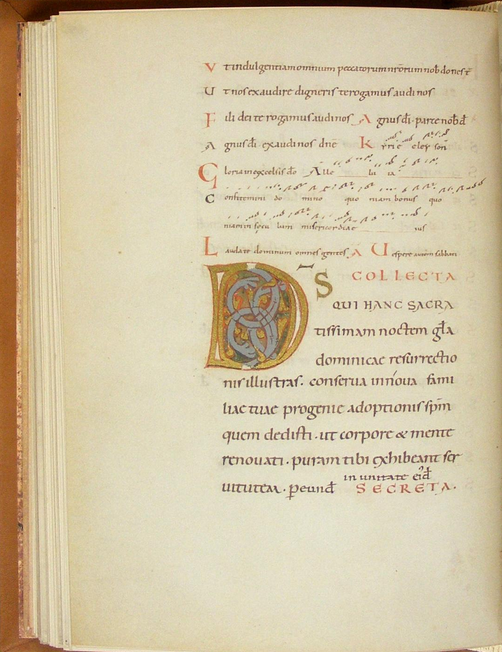 Vt indulgentiam omnium peccatorum nr̄orum nob̄ dones t̄
Ut nos exaudire digneris te rogamus audi nos
Fili dei te rogamus audi nos Agnus dī parce nob d̄
Agnus dī exaudi nos dn̄e Kyrie eleyson
Gloria in excelsis dō Alleluia
Confitemini domino quoniam bonus quo
niam in sc̄lu lum misericordia eius
Laudate dominum omnes gentes A Uespere autem sabbati
DS COLLECTA
QUI HANC SACRA
tissimam noctem gl̄a
dominicae resurrectio
nis illustras. conserua in noua fami
liae tuae progenie adoptionis sp̄m
quem dedisti. ut corpore & mente
renouati. puram tibi exhibeant ser
uitutem. p eund̄ in unitate eid̄ SECRETA.